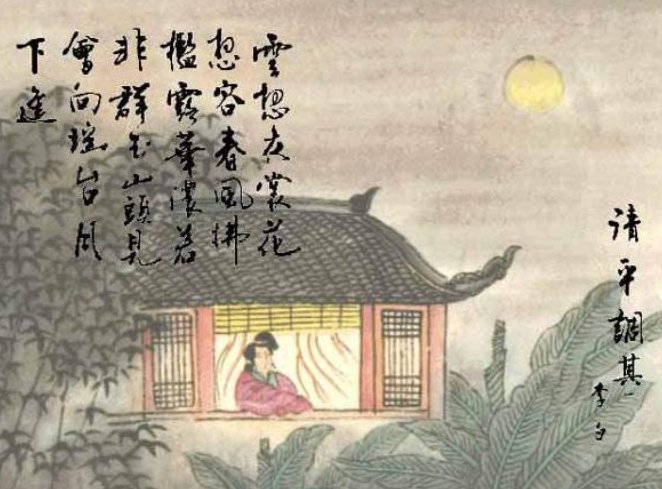 清平調其一
李白
雲想衣裳花
想容春風拂
檻露華濃若
非群玉山頭見
會向瑤台月
下逢